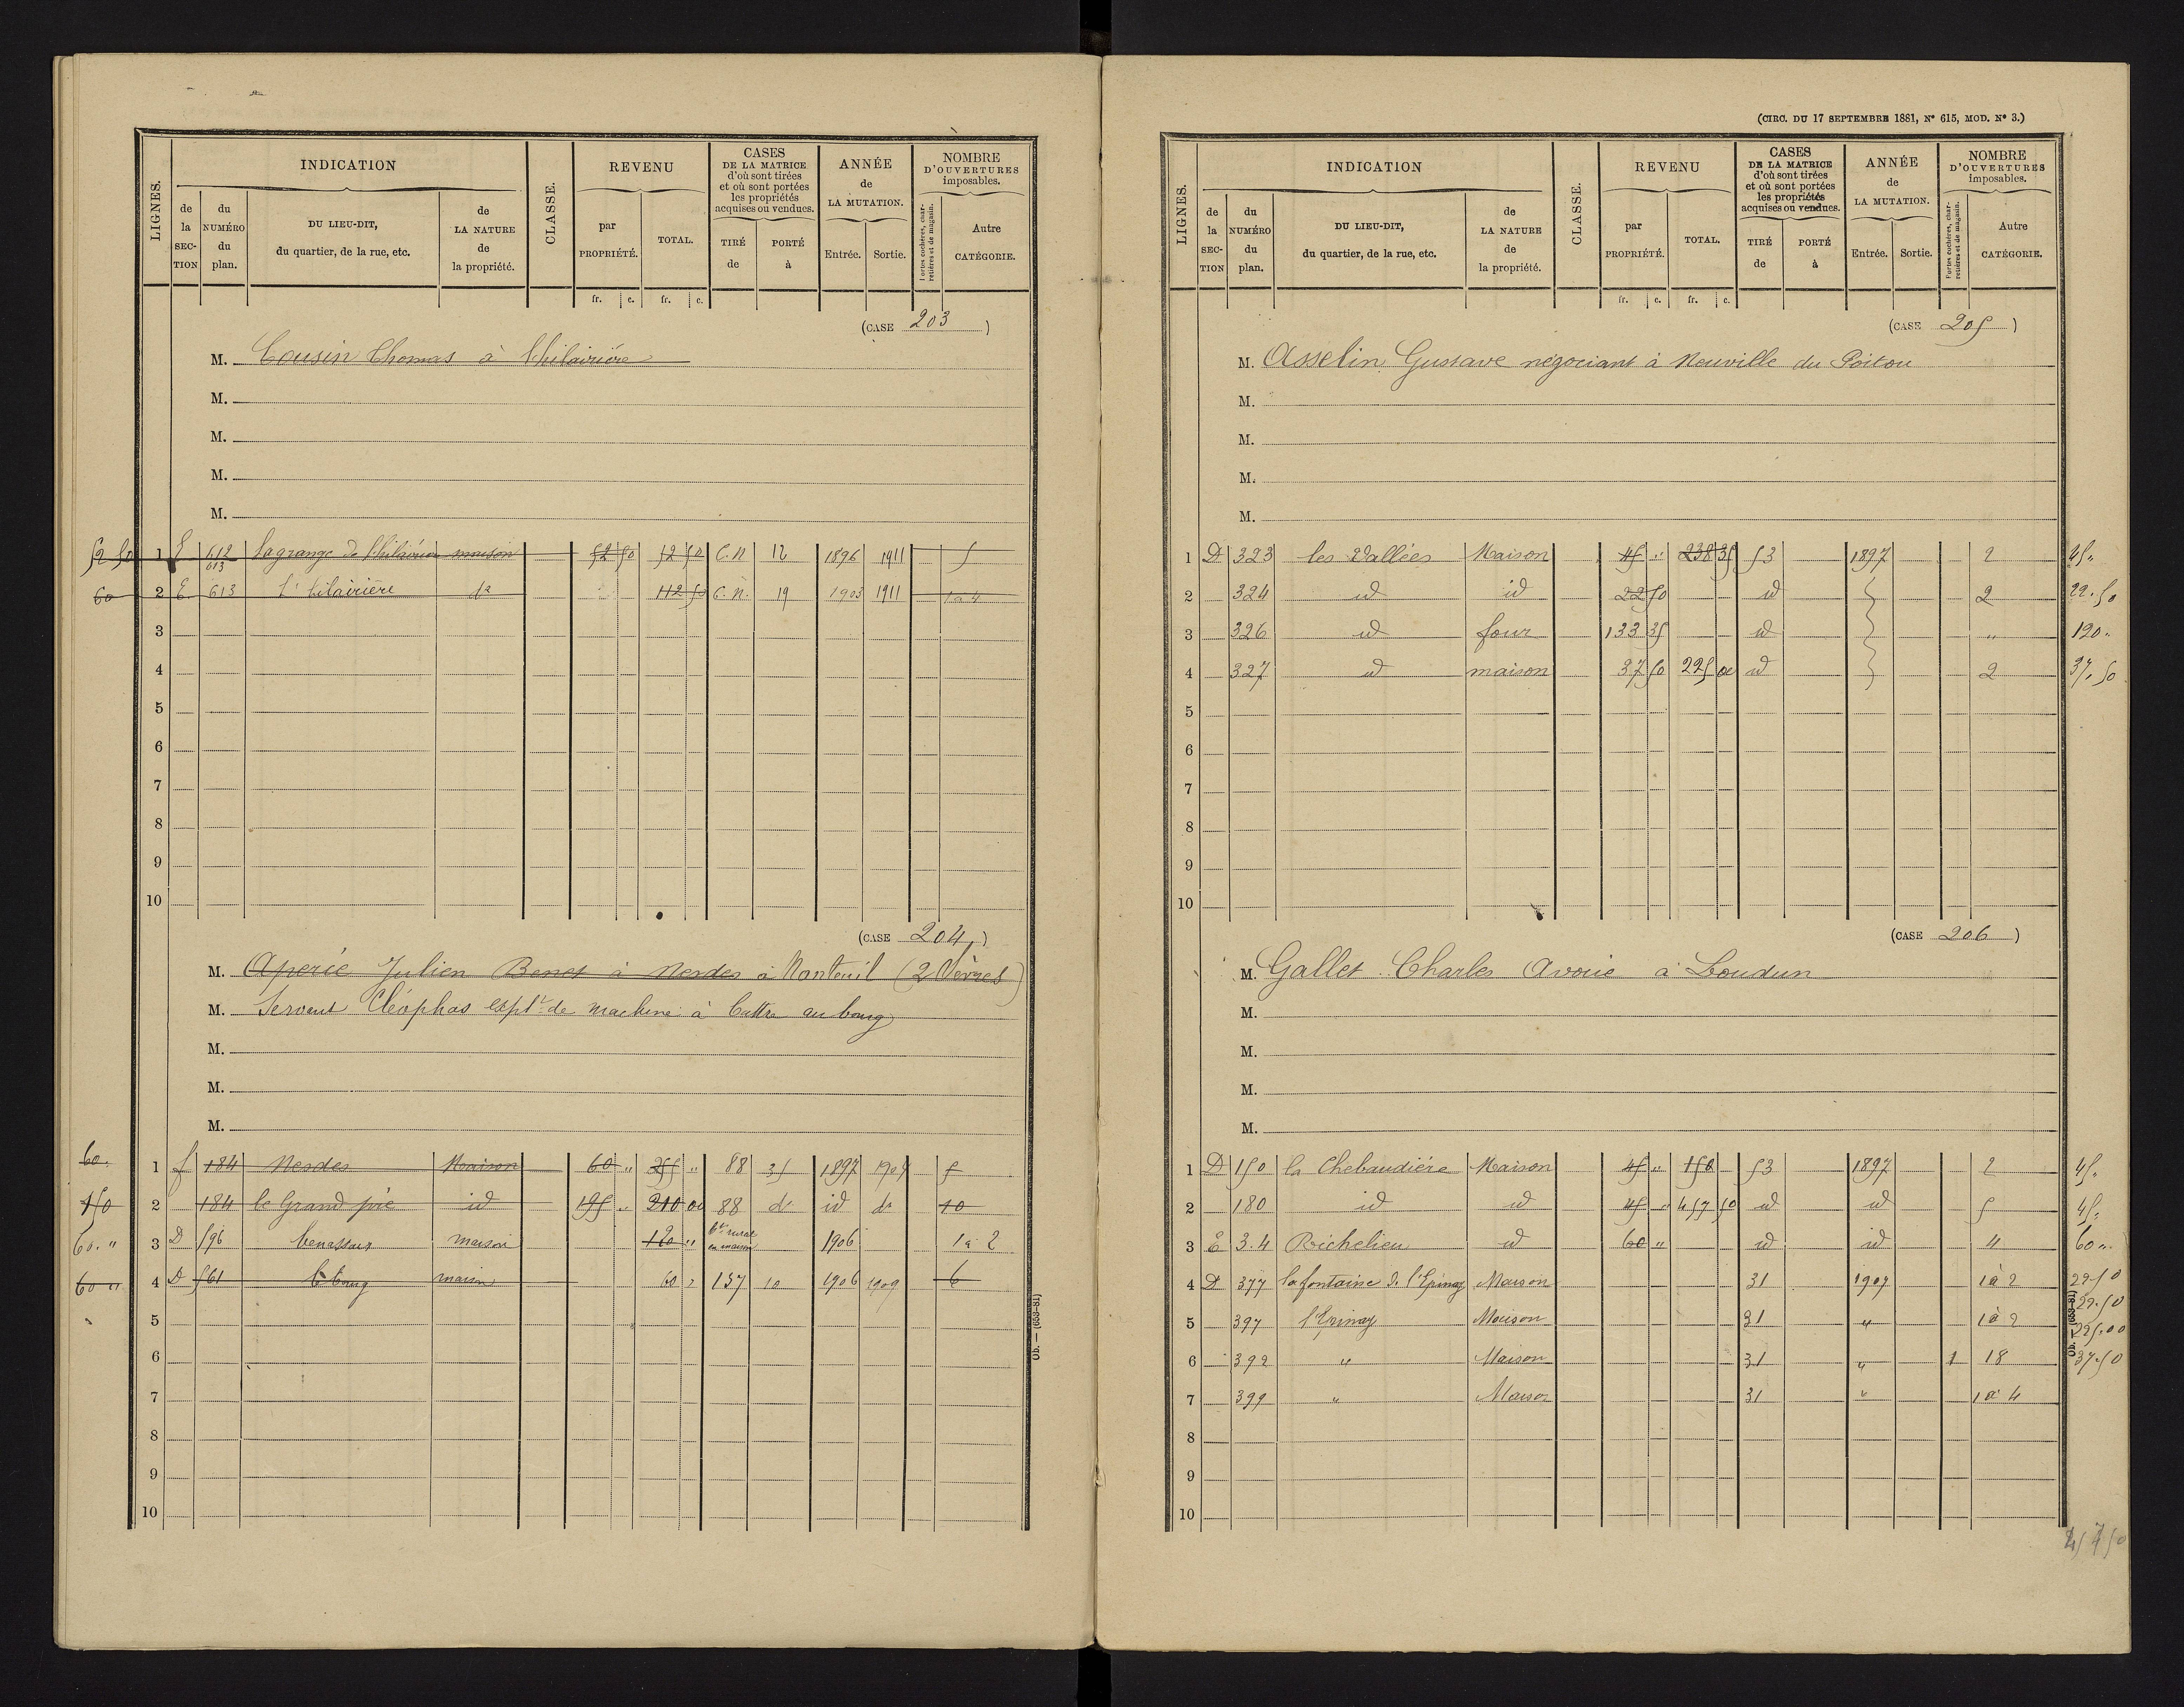 LIGNES.
INDICATION
CLASSE.
REVENU
CASES
DE LA MATRICE
d'où sont tirées
et où sont portées
les propriétés
acquises ou vendues.
ANNÉE
de
LA MUTATION.
NOMBRE
D'OUVERTURES
imposables.
de la SECTION
du NUMÉRO du plan.
DU LIEU-DIT,
du quartier, de la rue, etc.
de LA NATURE de la propriété.
par PROPRIÉTÉ.
TOTAL.
TIRÉ de
PORTÉ à
Entrée.
Sortie.
Portes cochères, charretières et de magasin.
Autre CATÉGORIE.
fr. c. fr. c.
(CASE 203)
M. Cousin Thomas à l'hilairière
M.
M.
M.
M.
52 50 1 E 612 613 Lagrange de l'hilairière maison 52 50 52 50 C.N 12 1896 1911 5
60 2 E. 613 L'hilairière da 112 50 C.N. 19 1903 1911 1 a 4
3
4
5
6
7
8
9
10
(CASE 204)
M. Aperié Julien Benet à Nesdes à Nanteuil (2 Sèvres)
M. Servant Cléophas expl.t de machine à battre au bourg
M.
M.
M.
60. 1 f 184 Nesdes Maison 60 " 255 " 88 35 1897 1907 5
150 2 184 le Grand pré id 195 " 210 00 88 do id do 10
60. " 3 D 596 maison 120 " bt rural en maison 1906 1 à 2
60 " 4 D 561 le bourg maison 60 " 137 10 1906 1909 6
5
6
7
8
9
10
Ob. — (653-81)
(CIRC. DU 17 SEPTEMBRE 1881, N° 615, MOD. N° 3.)
LIGNES.
INDICATION
CLASSE.
REVENU
CASES
DE LA MATRICE
d'où sont tirées
et où sont portées
les propriétés
acquises ou vendues.
ANNÉE
de
LA MUTATION.
NOMBRE
D'OUVERTURES
imposables.
de la SECTION
du NUMÉRO du plan.
DU LIEU-DIT,
du quartier, de la rue, etc.
de LA NATURE de la propriété.
par PROPRIÉTÉ.
TOTAL.
TIRÉ de
PORTÉ à
Entrée.
Sortie.
Portes cochères, charretières et de magasin.
Autre CATÉGORIE.
fr. c. fr. c.
(CASE 205)
M. Asselin Gustave négociant à Neuville du Poitou
M.
M.
M.
M.
1 D 323 les Vallées Maison 45 " 238 35 53 1897 2 45"
2 324 id id 22 50 id 2 22.50
3 326 id four 133 35 id " 120"
4 327 id maison 37 50 225 00 id 2 37.50
5
6
7
8
9
10
(CASE 206)
M. Gallet Charles Avoué à Loudun
M.
M.
M.
M.
1 D 150 la Chebaudière Maison 45 " 150 53 1897 2 45"
2 180 id id 45 " 457 50 id id 5 45"
3 E 3.4 Richelieu id 60 " id id 4 60"
4 D 377 la fontaine de l'Epinay Maison 31 1907 1 à 2 22.50
5 397 l'Epinay Maison 31 " 1 à 2 22.50
6 392 " Maison 31 " 1 18 225.00
7 399 " Maison 31 " 1 à 4 37.50
8
9
10
Ob. — (653-81)
457 50